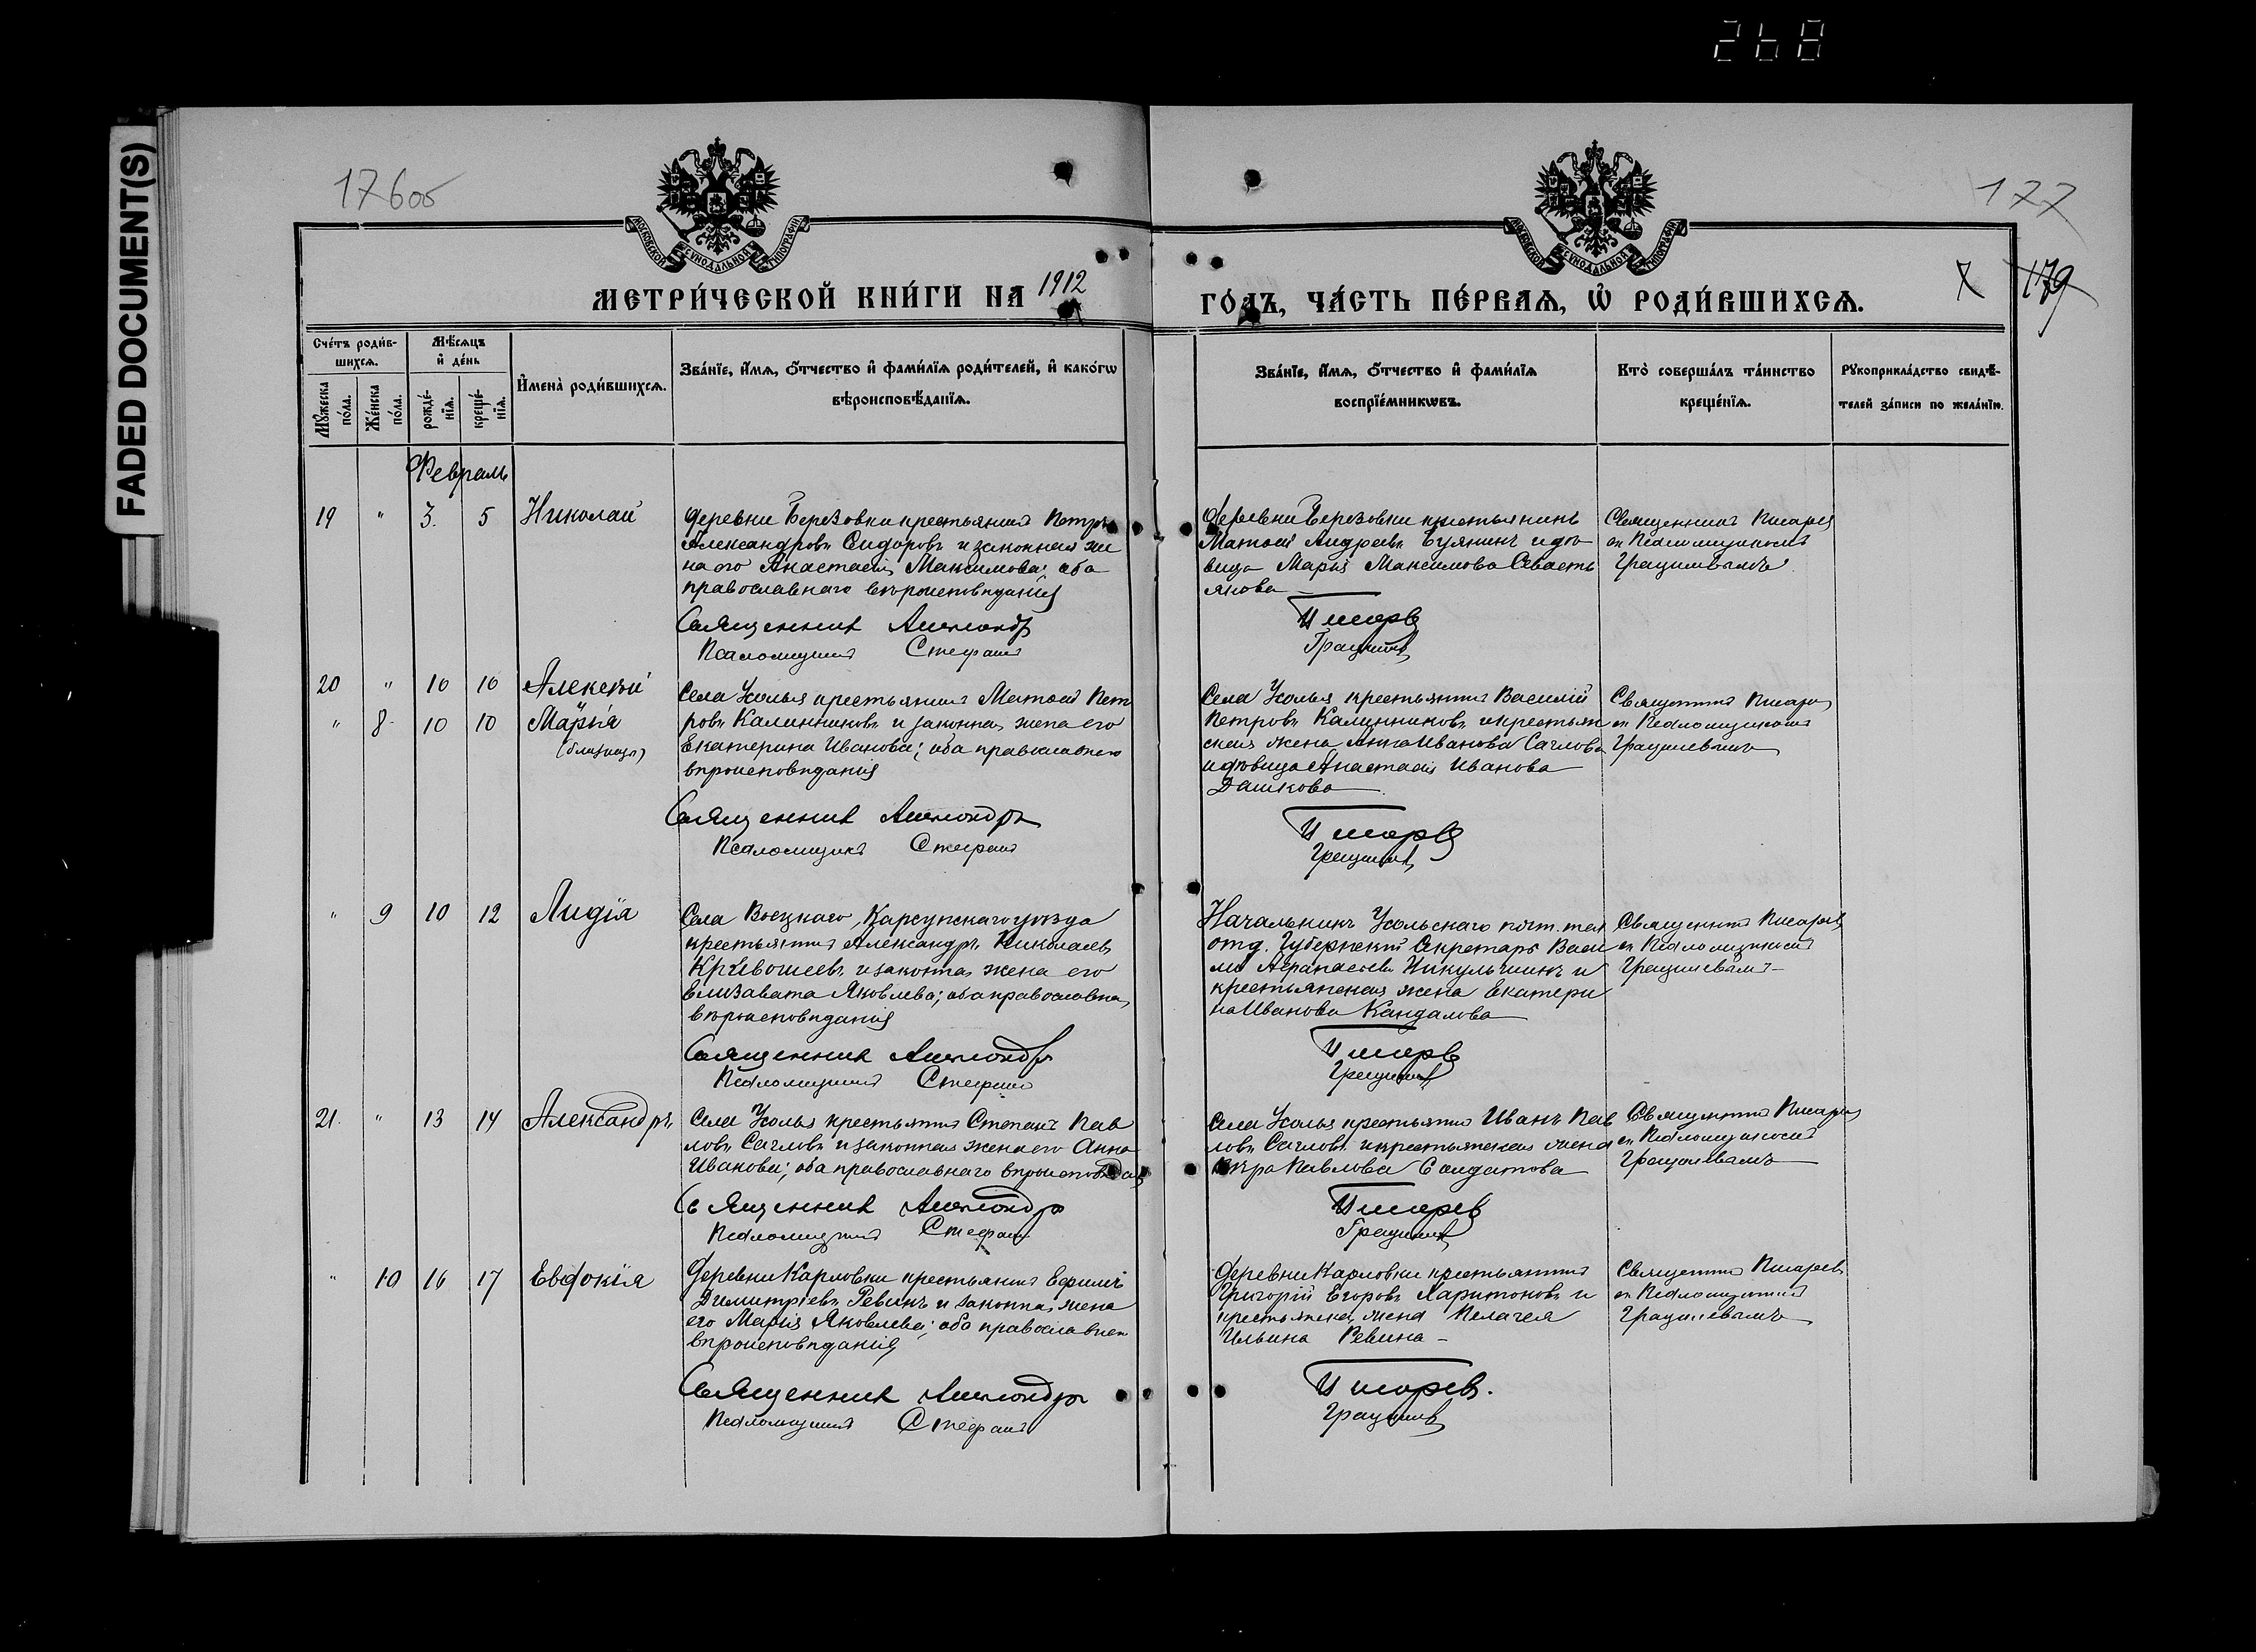 268
FADED DOCUMENT(S)
176об
177
179
7
МОСКОВСКОЙ СѴНОДАЛЬНОЙ ТИПОГРАФІИ
МОСКОВСКОЙ СѴНОДАЛЬНОЙ ТИПОГРАФІИ
МЕТРИ́ЧЕСКОЙ КНИ́ГИ НА 1912
ГО́ДЪ, ЧА́СТЬ ПЕ́РВАѦ, Ѡ҆ РОДИ́ВШИХСѦ.
Сче́тъ роди́в-
шихсѧ.
Мꙋ́жеска по́ла.
Же́нска по́ла.
Мѣ́сѧцъ
и҆ де́нь
рожде́-
нїѧ.
креще́-
нїѧ.
И҆мена̀ роди́вшихсѧ.
Зва́нїе, и҆́мѧ, ѻ҆́тчество и҆ фами́лїѧ роди́телей, и҆ како́гѡ
вѣроисповѣ́данїѧ.
Зва́нїе, и҆́мѧ, ѻ҆́тчество и҆ фами́лїѧ
воспрїе́мникѡвъ.
Кто̀ соверша́лъ та́инство
креще́нїѧ.
Рꙋкоприкла́дство свидѣ́-
телей за́писи по жела́нїю.
Февраль
19 " 3. 5 Николай
Деревни Березовки крестьянинъ Петръ
Александровъ Сидоровъ и законная же
на его Анастасія Максимова; оба
православнаго вѣроисповѣданія
Священникъ Александръ
Псаломщикъ Стефанъ
Деревни Березовки крестьянинъ
Матвей Андреевъ Буянинъ и вдо
вица Марія Максимова Севасть
янова
Писаревъ
Грацилевъ
Священникъ Писаревъ
съ Псаломщикомъ
Грацилевымъ
20 " 10 10 Алексѣй
" 8 10 10 Марія
(близнецы)
Села Усолья крестьянинъ Матвей Пет
ровъ Калинниковъ и законная жена его
Екатерина Иванова; оба православнаго
вѣроисповѣданія
Священникъ Александръ
Псаломщикъ Стефанъ
Села Усолья крестьянинъ Василій
Петровъ Калинниковъ и крестьян
ская жена Анна Иванова Сачлова
и вдовица Анастасія Иванова
Дашкова
Писаревъ
Грацилевъ
Священникъ Писаревъ
съ Псаломщикомъ
Грацилевымъ
" 9 10 12 Лидія
Села Воецкаго, Карсунскаго уѣзда
крестьянинъ Александръ Николаевъ
Кривошеевъ и законная жена его
Елизавета Яковлева; оба православнаго
вѣроисповѣданія
Священникъ Александръ
Псаломщикъ Стефанъ
Начальникъ Усольскаго почт. тел
отд. Губернскій Секретарь Васи
лій Никульшинъ и
крестьянская жена Екатери
на Иванова Кандалова
Писаревъ
Грацилевъ
Священникъ Писаревъ
съ Псаломщикомъ
Грацилевымъ
21. " 13 14 Александръ
Села Усолья крестьянинъ Степанъ Пав
ловъ Сачловъ и законная жена его Анна
Иванова; оба православнаго вѣроисповѣдан
Священникъ Александръ
Псаломщикъ Стефанъ
Села Усолья крестьянинъ Иванъ Пав
ловъ Сачловъ и крестьянская жена
Вѣра Павлова Солдатова
Писаревъ
Грацилевъ
Священникъ Писаревъ
съ Псаломщикомъ
Грацилевымъ
" 10 16 17 Евдокія
Деревни Карловки крестьянинъ Ефимъ
Димитріевъ Ревинъ и законная жена
его Марія Яковлева; оба православнаго
вѣроисповѣданія
Священникъ Александръ
Псаломщикъ Стефанъ
Деревни Карловки крестьянинъ
Григорій Егоровъ Харитоновъ и
крестьянская жена Пелагея
Ильина Ревина
Писаревъ.
Грацилевъ
Священникъ Писаревъ
съ Псаломщикомъ
Грацилевымъ